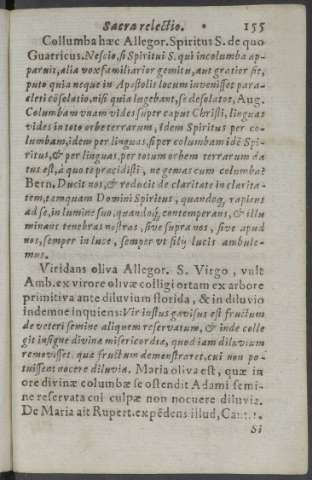 Sacra relectio. 155
Collumba hæc Allegor. Spiritus S. de quo
Guatricus. Nescio, si Spiritui S. qui incolumba ap-
paruit, alia vox familiarior gemitu, aut gratior sit,
puto quia neque in Apostolis locum invenisset para-
cleti cõsolatio, nisi quia lugebant, se desolatos, Aug.
Columbam vnam vides super caput Christi, linguas
vides in toto orbe terrarum, idem Spiritus per co-
lumbam, idem per linguas, si per columbam idẽ Spi-
ritus, & per linguas, per totum orbem terrarum da
tus est, à quo te præcidisti, ne gemas cum columba?
Bern. Ducit nos, & reducit de claritate in clarita-
tem, tamquam Domini Spiritus, quandoq, rapiens
ad se, in lumine suo, quandoq, contemperans, & illu
minans tenebras nostras, sive supra nos, sive apud
nos, semper in luce, semper vt filij lucis ambule-
mus.
Viridans oliva Allegor. S. Virgo, vult
Amb. ex virore olivæ colligi ortam ex arbore
primitiva ante diluvium florida, & in diluvio
indemne inquiens: Vir iustus gavisus est fructum
de veteri semine aliquem reservatum, & inde colle
git insigne divinæ misericordiæ, quod iam diluvium
removisset. quæ fructum demonstraret, cui non po-
tuisset nocere diluvia. Maria oliva est, quæ in
ore divinæ columbæ se ostendit Adami semi-
ne reservata cui culpæ non nocuere diluvia.
De Maria ait Rupert. expẽdens illud,
Si